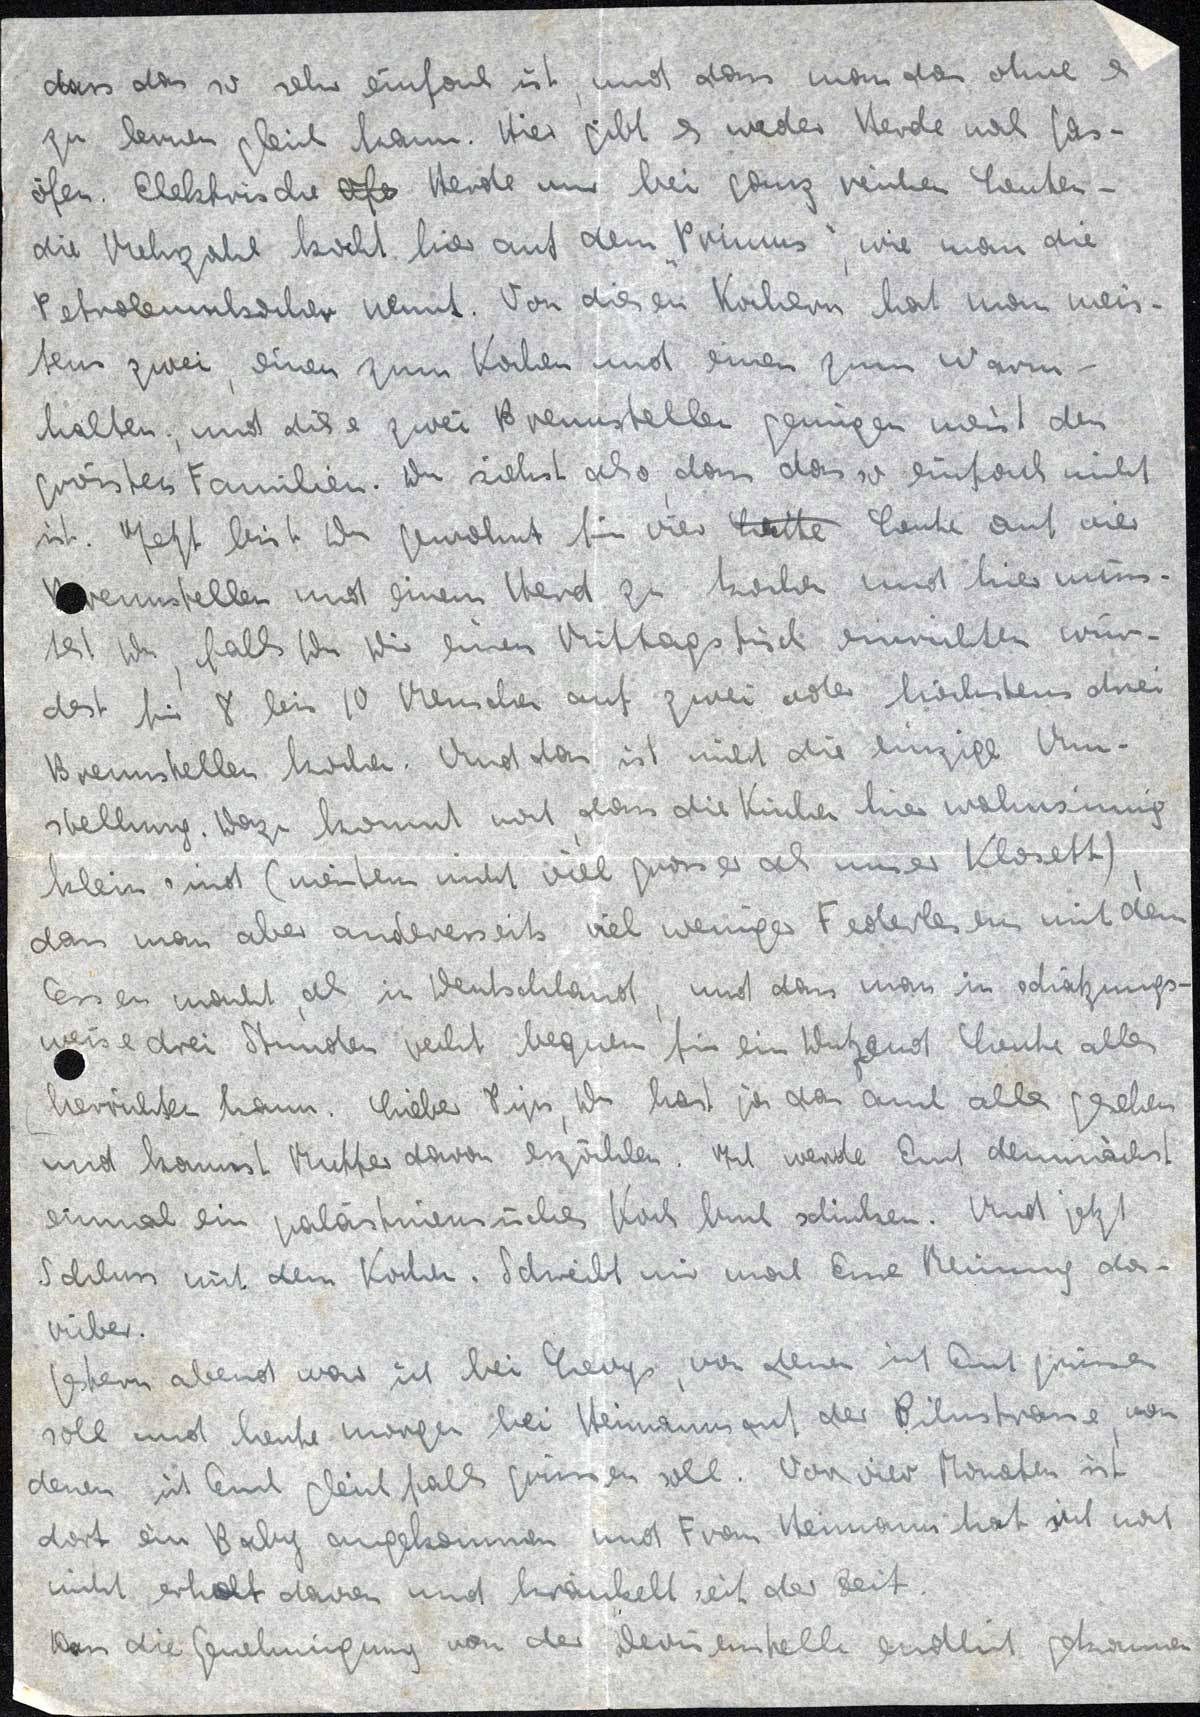 dass das so sehr einfach ist, und dass man das ohne es
zu lernen gleich kann. Hier gibt es weder Herde noch Gas-
öfen. Elektrische Herde nur bei ganz reichen Leuten -
die Mehrzahl kocht hier auf dem „Primus“, wie man die
Petroleumkocher nennt. Von diesen Kochern hat man meis-
tens zwei, einen zum Kochen und einen zum Warm-
halten, und diese zwei Brennstellen genügen meist den
grössten Familien. Du siehst also, dass das so einfach nicht
ist. Jetzt bist Du gewohnt für vier Leute auf vier
Brennstellen und einem Herd zu kochen und hier müss-
test Du, falls Du Dir einen Mittagstisch einrichten wür-
dest für 8 bis 10 Menschen auf zwei oder höchstens drei
Brennstellen kochen. Und das ist nicht die einzige Um-
stellung. Dazu kommt noch, dass die Küchen hier wahnsinnig
klein sind (meistens nicht viel grosser als unser Klosett),
dass man aber andererseits viel weniger Federlesens mit dem
Essen macht, als in Deutschland, und dass man in schätzungs-
weise drei Stunden recht bequem für ein Dutzend Leute alles
herrichten kann. Lieber Pips, Du hast ja das auch alles gesehen
und kannst Mutter davon erzählen. Ich werde Euch demnächst
einmal ein palästinensisches Kochbuch schicken. Und jetzt
Schluss mit dem Kochen. Schreibt mir mal Eure Meinung da-
rüber.
Gestern abend war ich bei Levys, von denen ich Euch grüssen
soll und heute morgen bei Heimanns auf der Pilustrasse, von
denen ich Euch gleichfalls grüssen soll. Vor vier Monaten ist
dort ein Baby angekommen und Frau Heimann hat sich noch
nicht erholt davon und kränkelt seit der Zeit
Dass die Genehmigung von der Devisenstelle endlich gekommen